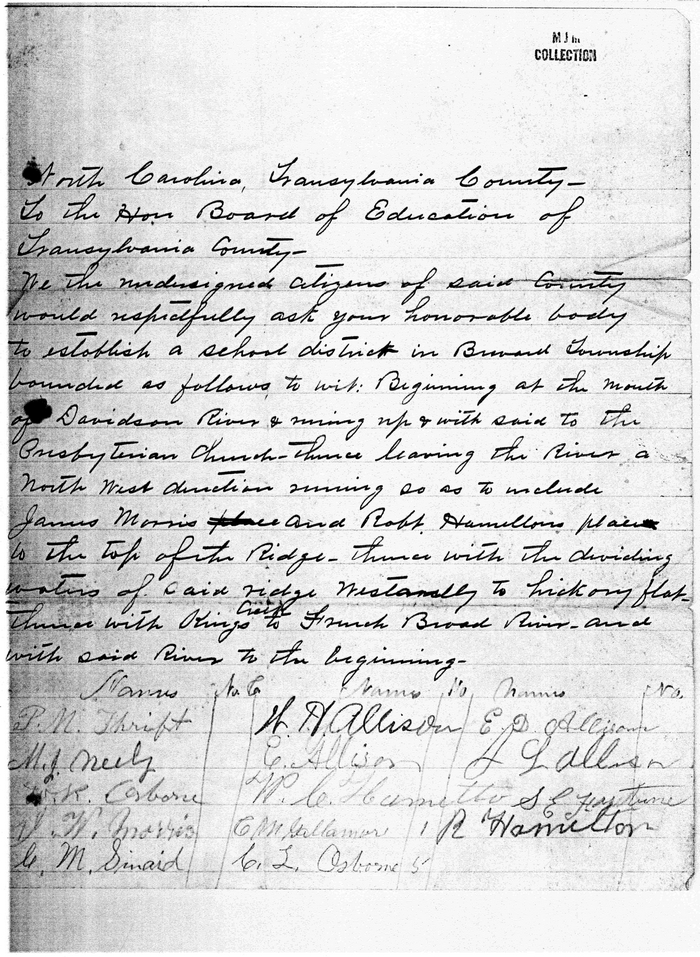 COLLECTION
North Carolina, Transylvania County-
To the Hon Board of Education of
Transylvania County-
We the undesigned citizens of said County
would respectfully ask your honorable body
to establish a school district in Brevard Township
bounded as follows, to wit: Beginning at the mouth
of Davidson River & runing up & with said to the
Presbyterian Church-thence leaving the River a
North West direction runing so as to include
James Morris place and Robt Hamiltons place
to the top of the Ridge- thence with the dividing
waters of said ridge Westardly to hickory flat-
thence with Kings Creek to French Broad River-and
with said River to the beginning-
Names No. C Names No Names No.
P. N. Thrift W. H Allison E. D. Allison
M. J. Neely E. Allison J L Allison
K. Osborne W. C. Hamilton S E
W. Morris E. M. Gillamore 1 R Hamilton
C. M. Siniard C. L. Osborne 5